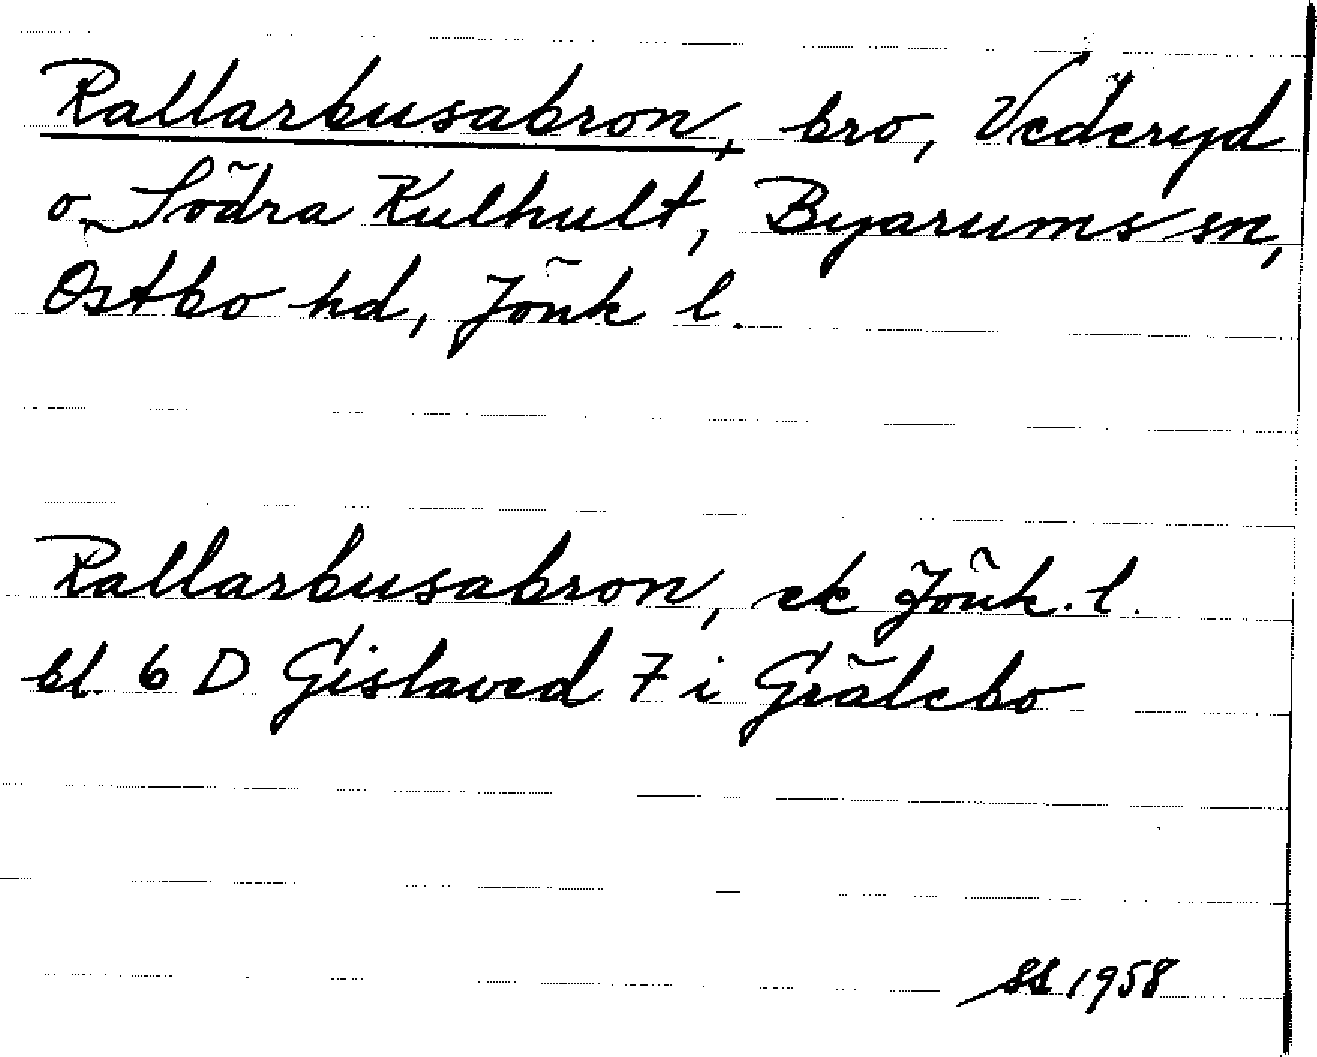 Rallarbusabron, bro, Vederyd
o. Södra Kulhult, Byarums sn,
Östbo hd, Jönk l.
Rallarbusabron, ek Jönk. l.
bl. 6 D Gislaved 7 i Grälebo
SS 1958